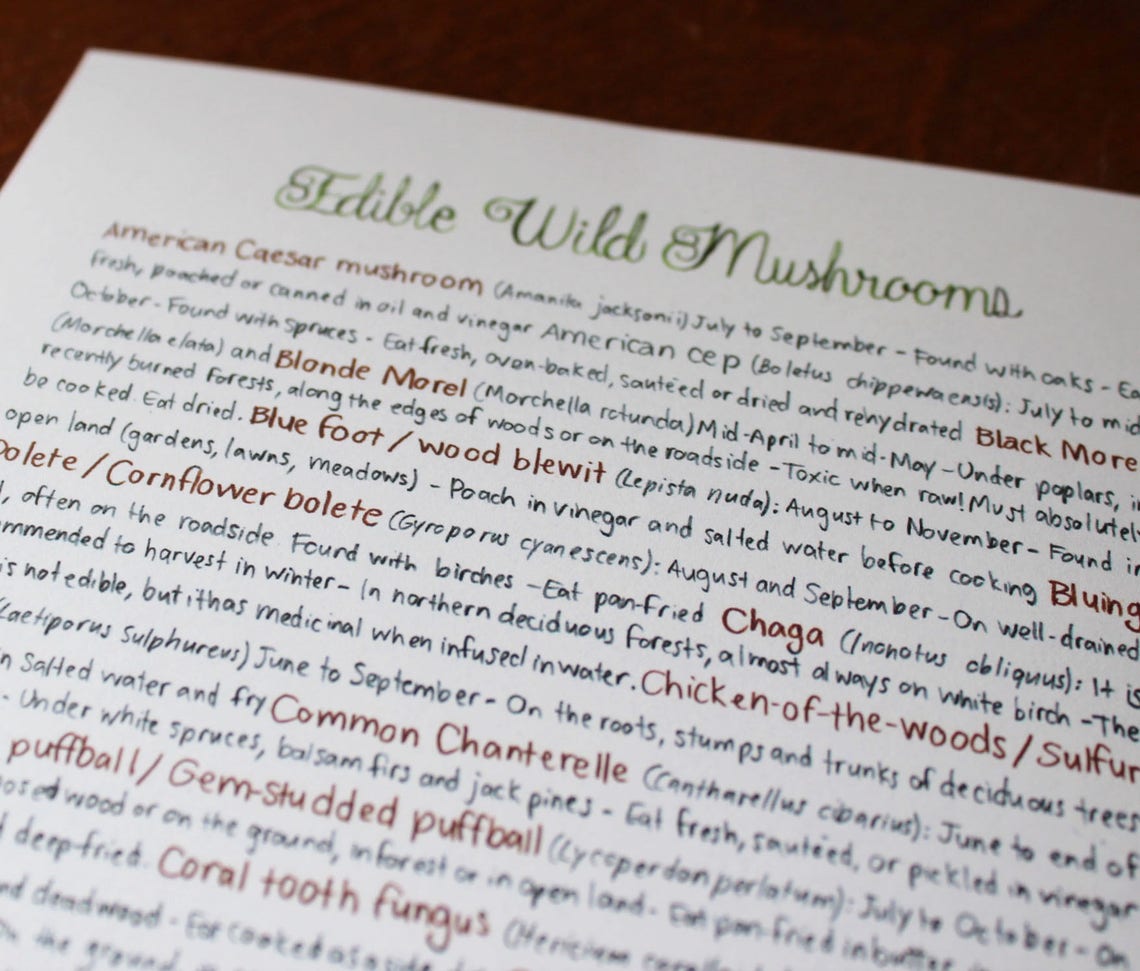 Edible Wild Mushrooms
American Caesar mushroom (Amanita jacksonii) July to September - Found with oaks - Ea
fresh, poached or canned in oil and vinegar American cep (Boletus chippewaensis): July to mid
October - Found with spruces - Eat fresh, oven-baked, sautéed or dried and rehydrated Black More
(Morchella elata) and Blonde Morel (Morchella rotunda) Mid-April to mid-May - Under poplars, i
recently burned forests, along the edges of woods or on the roadside - Toxic when raw! Must absolutely
be cooked. Eat dried. Blue foot / wood blewit (Lepista nuda): August to November - Found in
open land (gardens, lawns, meadows) - Poach in vinegar and salted water before cooking Bluing
bolete / Cornflower bolete (Gyroporus cyanescens): August and September - On well-drained
, often on the roadside. Found with birches - Eat pan-fried Chaga (Inonotus obliquus): It is
ommended to harvest in winter - In northern deciduous forests, almost always on white birch - The
is not edible, but it has medicinal when infused in water. Chicken-of-the-woods / Sulfur
(Laetiporus Sulphureus) June to September - On the roots, stumps and trunks of deciduous trees
n Salted water and fry Common Chanterelle (Cantharellus cibarius): June to end of
- Under white spruces, balsam firs and jack pines - Eat fresh, sautéed, or pickled in vinegar
puffball / Gem-studded puffball (Lycoperdon perlatum): July to October - On
osed wood or on the ground, in forest or in open land - Eat pan-fried in butter
deep-fried. Coral tooth fungus (Hericium
nd deadwood - Eat cooked as a side
On the ground,